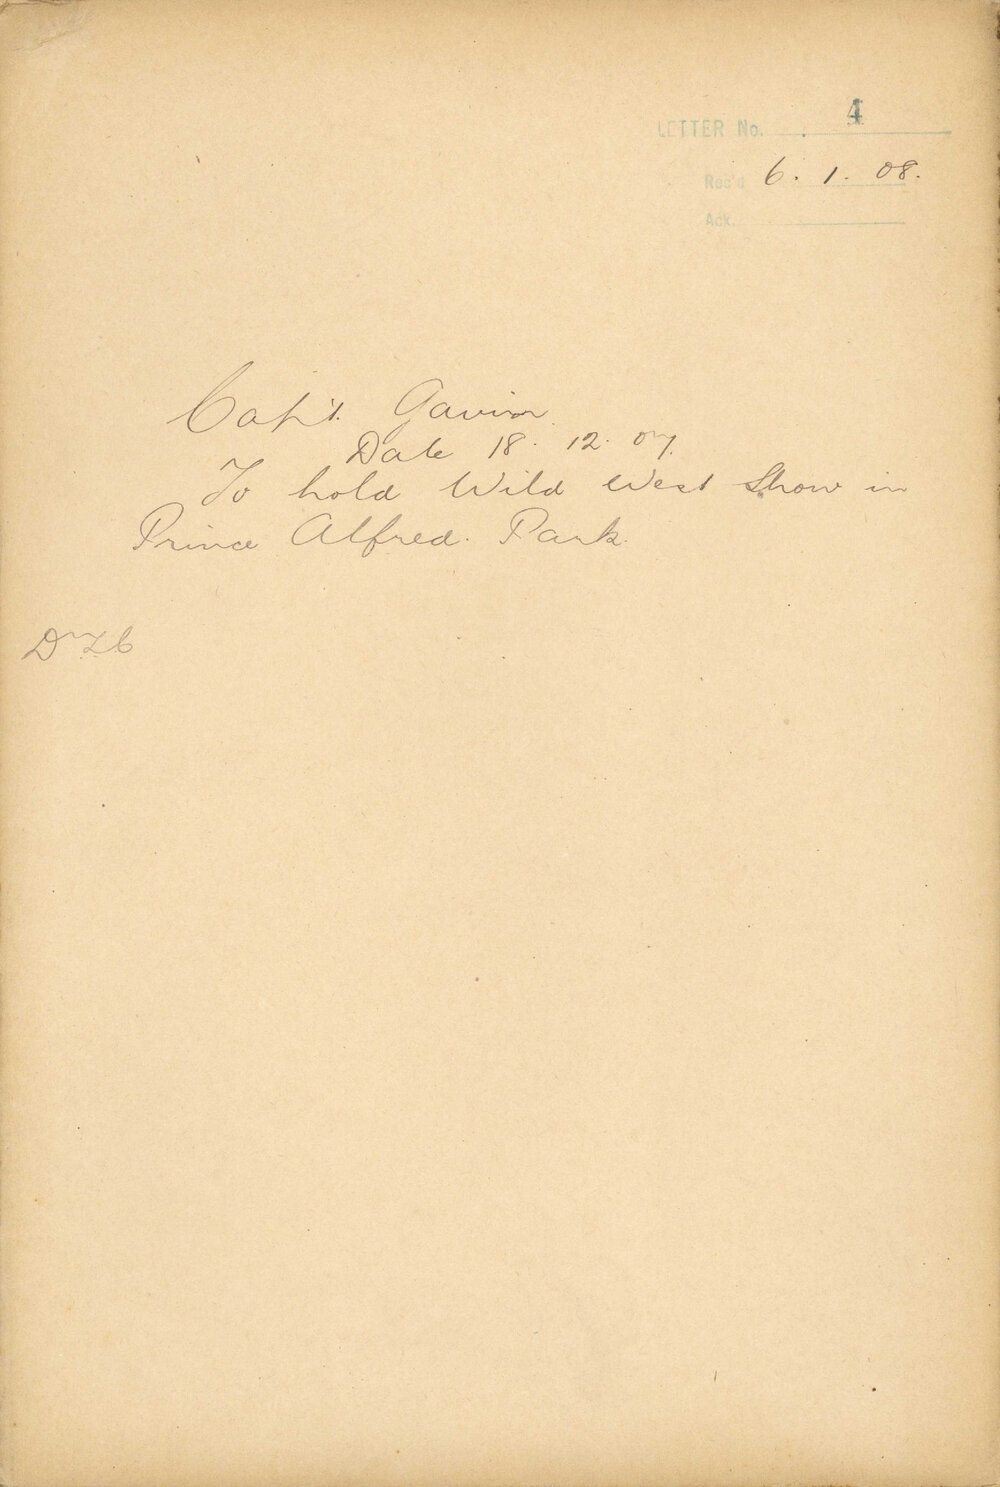 LETTER No. 4
Rec'd 6. 1. 08.
Ack.
Capt. Gavin
Date 18. 12. 07.
To hold Wild West Show in
Prince Alfred. Park.